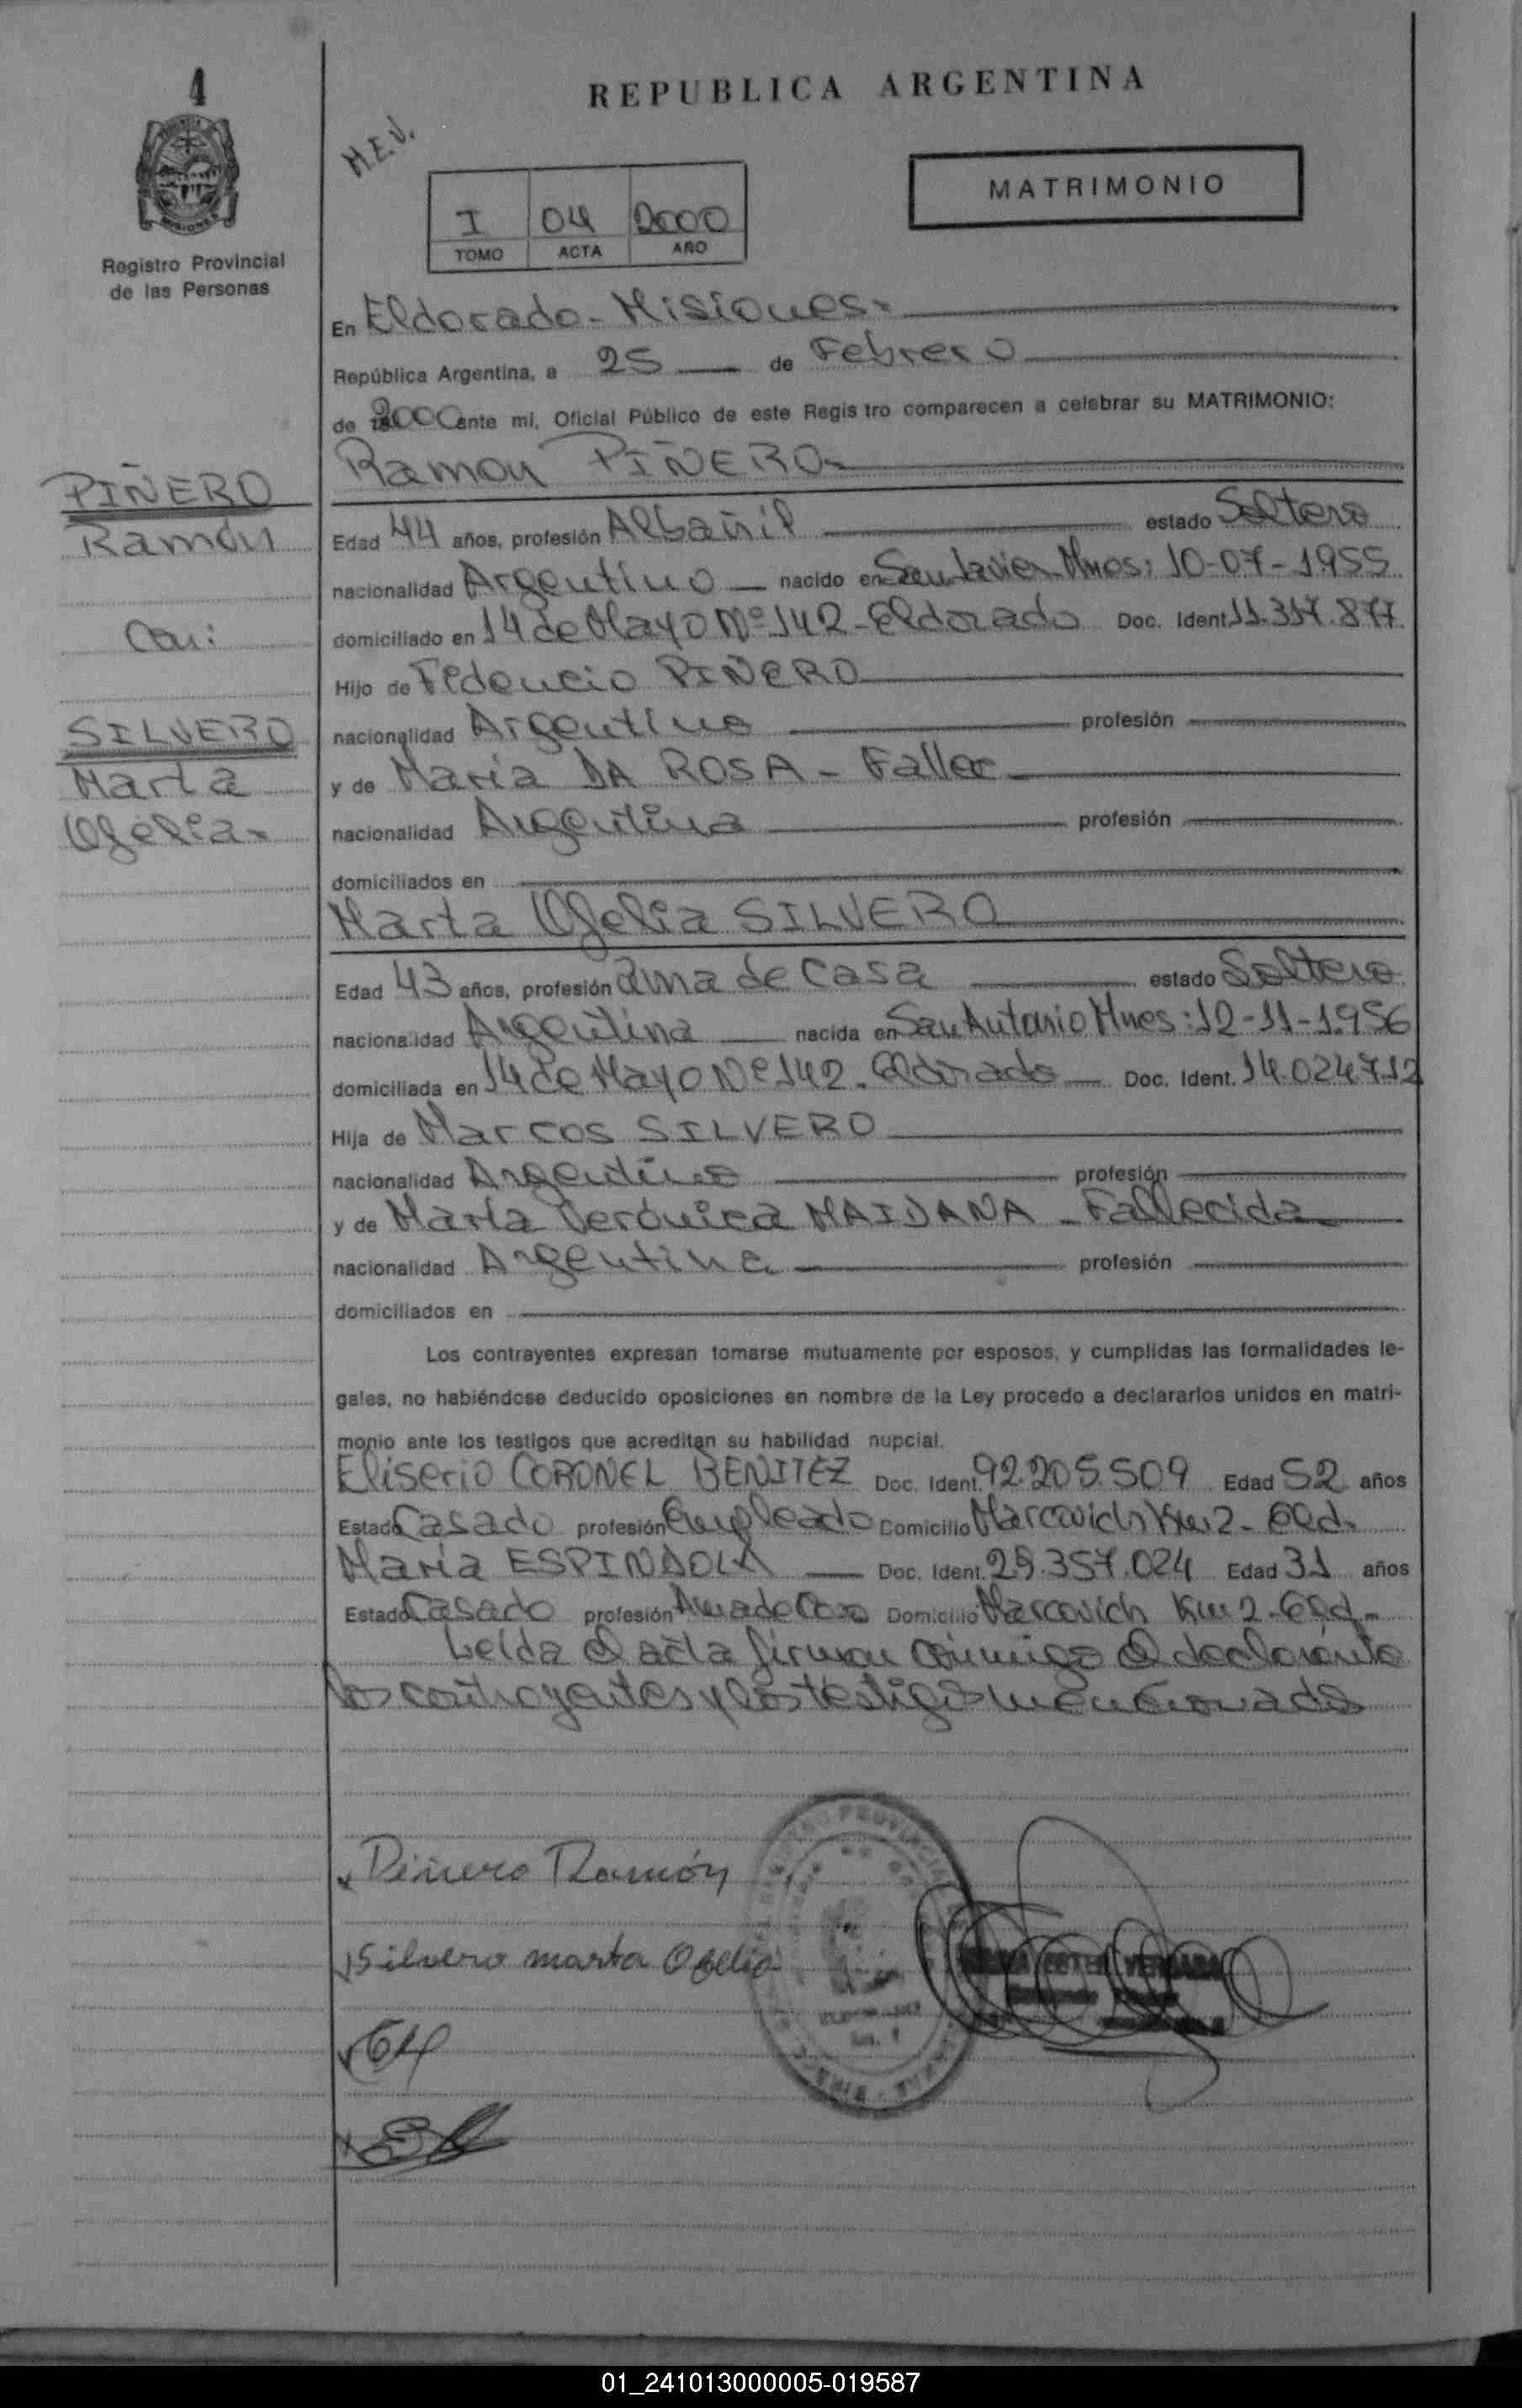 4
REPUBLICA ARGENTINA
M.E.V.
MATRIMONIO
I 04 2000
TOMO ACTA AÑO
Registro Provincial
de las Personas
En Eldorado - Misiones-
República Argentina, a 25 de Febrero
de 2000 ante mí, Oficial Público de este Registro comparecen a celebrar su MATRIMONIO:
Ramon PIÑERO-
PIÑERO
Ramón
Con:
SILVERO
Marta
Ofelia-
Edad 44 años, profesión Albañil estado Soltero
nacionalidad Argentino nacido en San Javier Mnes: 10-07-1955
domiciliado en 14 de Mayo Nº 142 - Eldorado Doc. Ident. 11.317.877
Hijo de Fidencio PIÑERO
nacionalidad Argentino profesión
y de María DA ROSA - Fallec.
nacionalidad Argentina profesión
domiciliados en
Marta Ofelia SILVERO
Edad 43 años, profesión ama de casa estado Soltera
nacionalidad Argentina nacida en San Antonio Mnes: 12-11-1956
domiciliada en 14 de Mayo Nº 142. Eldorado Doc. Ident. 14.024712
Hija de Marcos SILVERO
nacionalidad Argentino profesión
y de María Verónica MAIDANA - Fallecida
nacionalidad Argentina profesión
domiciliados en
Los contrayentes expresan tomarse mutuamente por esposos, y cumplidas las formalidades le-
gales, no habiéndose deducido oposiciones en nombre de la Ley procedo a declararlos unidos en matri-
monio ante los testigos que acreditan su habilidad nupcial.
Eliserio CORONEL BENITEZ Doc. Ident. 92.205.509 Edad 52 años
Estado Casado profesión Empleado Domicilio Marcovich Km 2 - Eld.
María ESPINDOLA Doc. Ident. 29.357.024 Edad 31 años
Estado Casado profesión Ama de Casa Domicilio Marcovich Km 2 - Eld.-
Leída el acta firman conmigo el declarante
los contrayentes y los testigos mencionados
Piñero Ramón
Silvero marta Ofelia
01_241013000005-019587